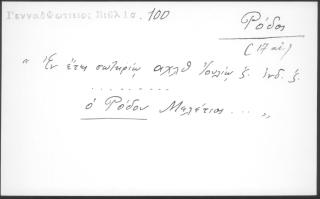 Γενναδ�ειος Βιβλιο. 100
Ρόδος
(17 αἰ.)
“ Ἐν ἔτει σωτηρίῳ αχλθ Ἰουλίῳ ξ. Ἰνδ. ζ.
. . . . . . . . .
ὁ Ῥόδου Μελέτιος . . . „